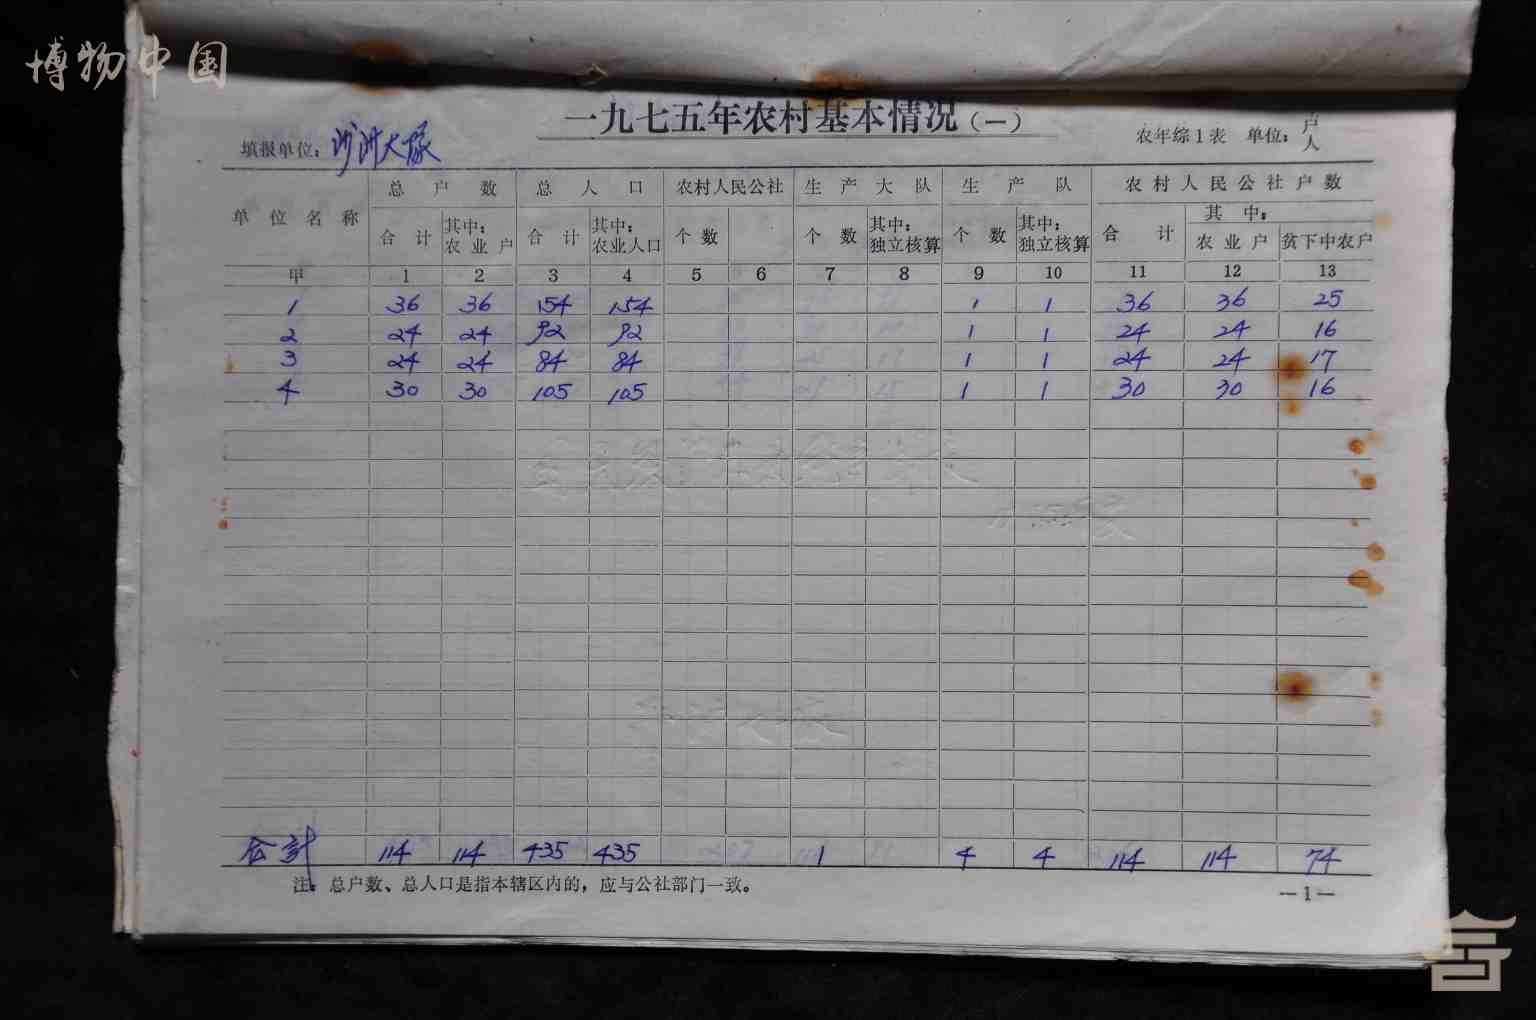 博物中国
一九七五年农村基本情况（一）
填报单位：沙洲大隊 农年综1表 单位：户人
单位名称 总户数 总人口 农村人民公社 生产大队 生产队 农村人民公社户数
合计 其中：农业户 合计 其中：农业人口 个数 个数 其中：独立核算 个数 其中：独立核算 合计 其中：农业户 贫下中农户
甲 1 2 3 4 5 6 7 8 9 10 11 12 13
1 36 36 154 154 1 1 36 36 25
2 24 24 92 92 1 1 24 24 16
3 24 24 84 84 1 1 24 24 17
4 30 30 105 105 1 1 30 30 16
合計 114 114 435 435 1 4 4 114 114 74
注：总户数、总人口是指本辖区内的，应与公社部门一致。
—1—